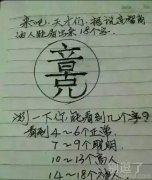 来吧，天才们，据说高智商
的人能看出来18个字。
竟
测一下你，能看到几个字？
看到4～6个正常
7～9个聪明
10～13个高人
14～18个神人